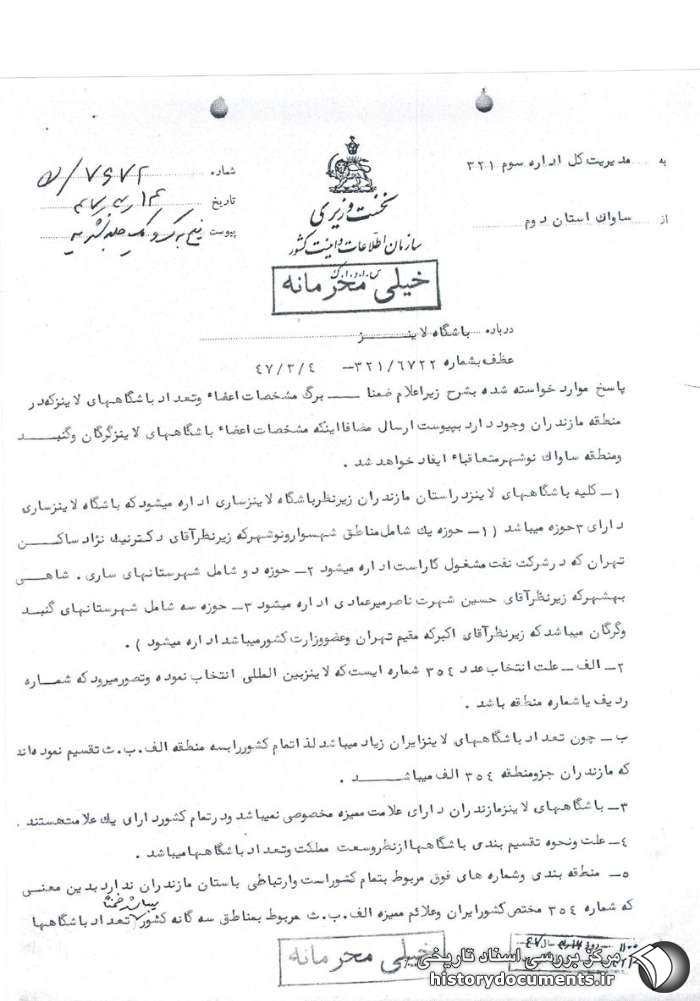 به مدیریت کل اداره سوم ۳۲۱
از ساواك استان دوم
شماره ۷۶۷۲/ه
تاریخ
پیوست
نخست وزیری
سازمان اطلاعات و امنیت کشور
س.ا.و.ا.ك
خیلی محرمانه
درباره باشگاه لاینز
عطف بشماره ۳۲۱/۶۷۲۲ــ ۴۷/۲/۴
پاسخ موارد خواسته شده بشرح زیراعلام ضمنا ــ برگ مشخصات اعضاء وتعداد باشگاههای لاینزکه در
منطقه مازندران وجود دارد بپیوست ارسال مضافااینکه مشخصات اعضاء باشگاههای لاینزگرگان وگنبد
ومنطقه ساواك نوشهرمتعاقباء ایفاد خواهد شد .
۱ــ کلیه باشگاههای لاینزدراستان مازندران زیرنظرباشگاه لاینزساری اداره میشودکه باشگاه لاینزساری
دارای ۳حوزه میباشد (۱ــ حوزه یك شامل مناطق شهسوارونوشهرکه زیرنظرآقای دکترنیك نژاد ساکن
تهران که درشرکت نفت مشغول کاراست اداره میشود ۲ــ حوزه دو شامل شهرستانهای ساری . شاهی
بهشهرکه زیرنظرآقای حسین شهرت ناصرمیرعمادی اداره میشود ۳ــ حوزه سه شامل شهرستانهای گنبد
وگرگان میباشدکه زیرنظرآقای اکبرکه مقیم تهران وعضووزارت کشورمیباشد اداره میشود ) .
۲ــ الف ــ علت انتخاب عدد ۳۵۴ شماره ایست که لاینزبین المللی انتخاب نموده وتصورمیرودکه شماره
ردیف یاشماره منطقه باشد .
ب ــ چون تعداد باشگاههای لاینزایران زیاد میباشد لذا تمام کشوررابسه منطقه الف .ب .ث تقسیم نموده اند
که مازندران جزومنطقه ۳۵۴ الف میباشد .
۳ــ باشگاههای لاینزمازندران دارای علامت ممیزه مخصوصی نمیباشد ودرتمام کشوردارای یك علامت هستند .
۴ــ علت ونحوه تقسیم بندی باشگاههاازنظروسعت مملکت وتعداد باشگاههامیباشد .
۵ــ منطقه بندی وشماره های فوق مربوط بتمام کشوراست وارتباطی باستان مازندران ندارد بدین معنی
که شماره ۳۵۴ مختص کشورایران وعلائم ممیزه الف .ب .ث مربوط بمناطق سه گانه کشور تعداد باشگاهها
خیلی محرمانه
مرکز بررسی اسناد تاریخی
historydocuments.ir